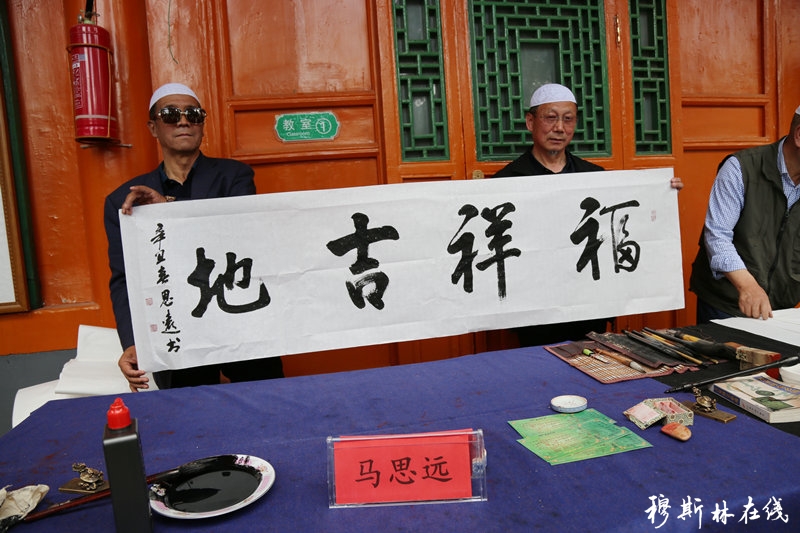 教室
Classroom
福祥吉地
辛丑春思遠书
马思远
穆斯林在线